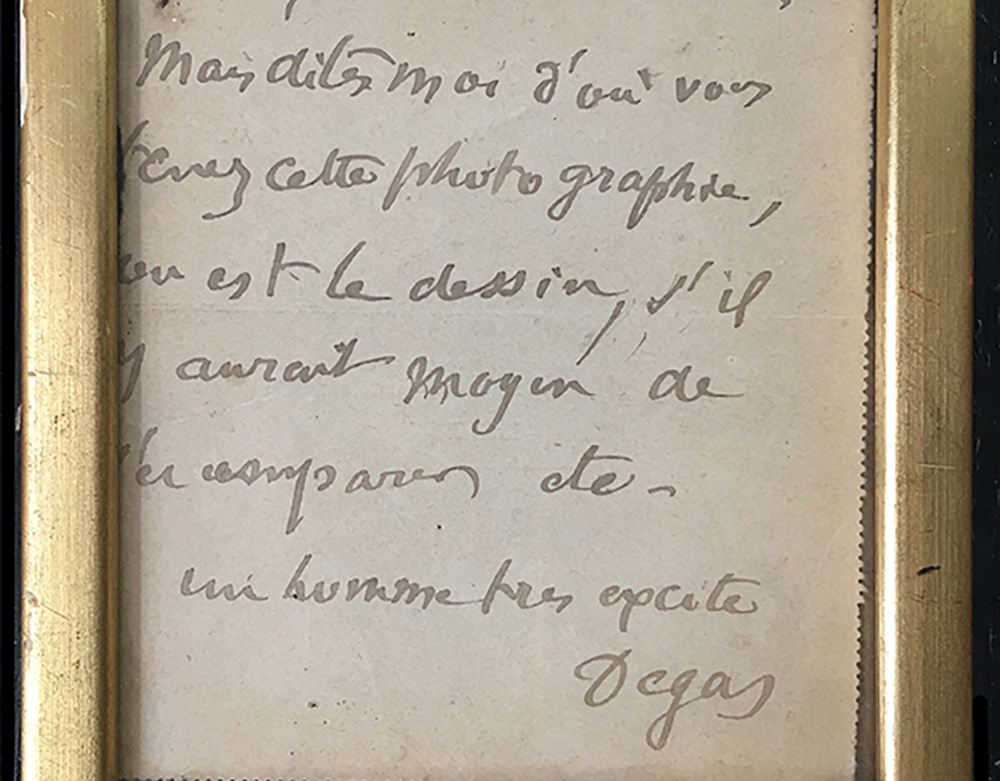 Mais dites moi d'où vous
tenez cette photographie,
ou est le dessin, s'il
y aurait moyen de
s'en emparer etc -
un homme tres excité
Degas